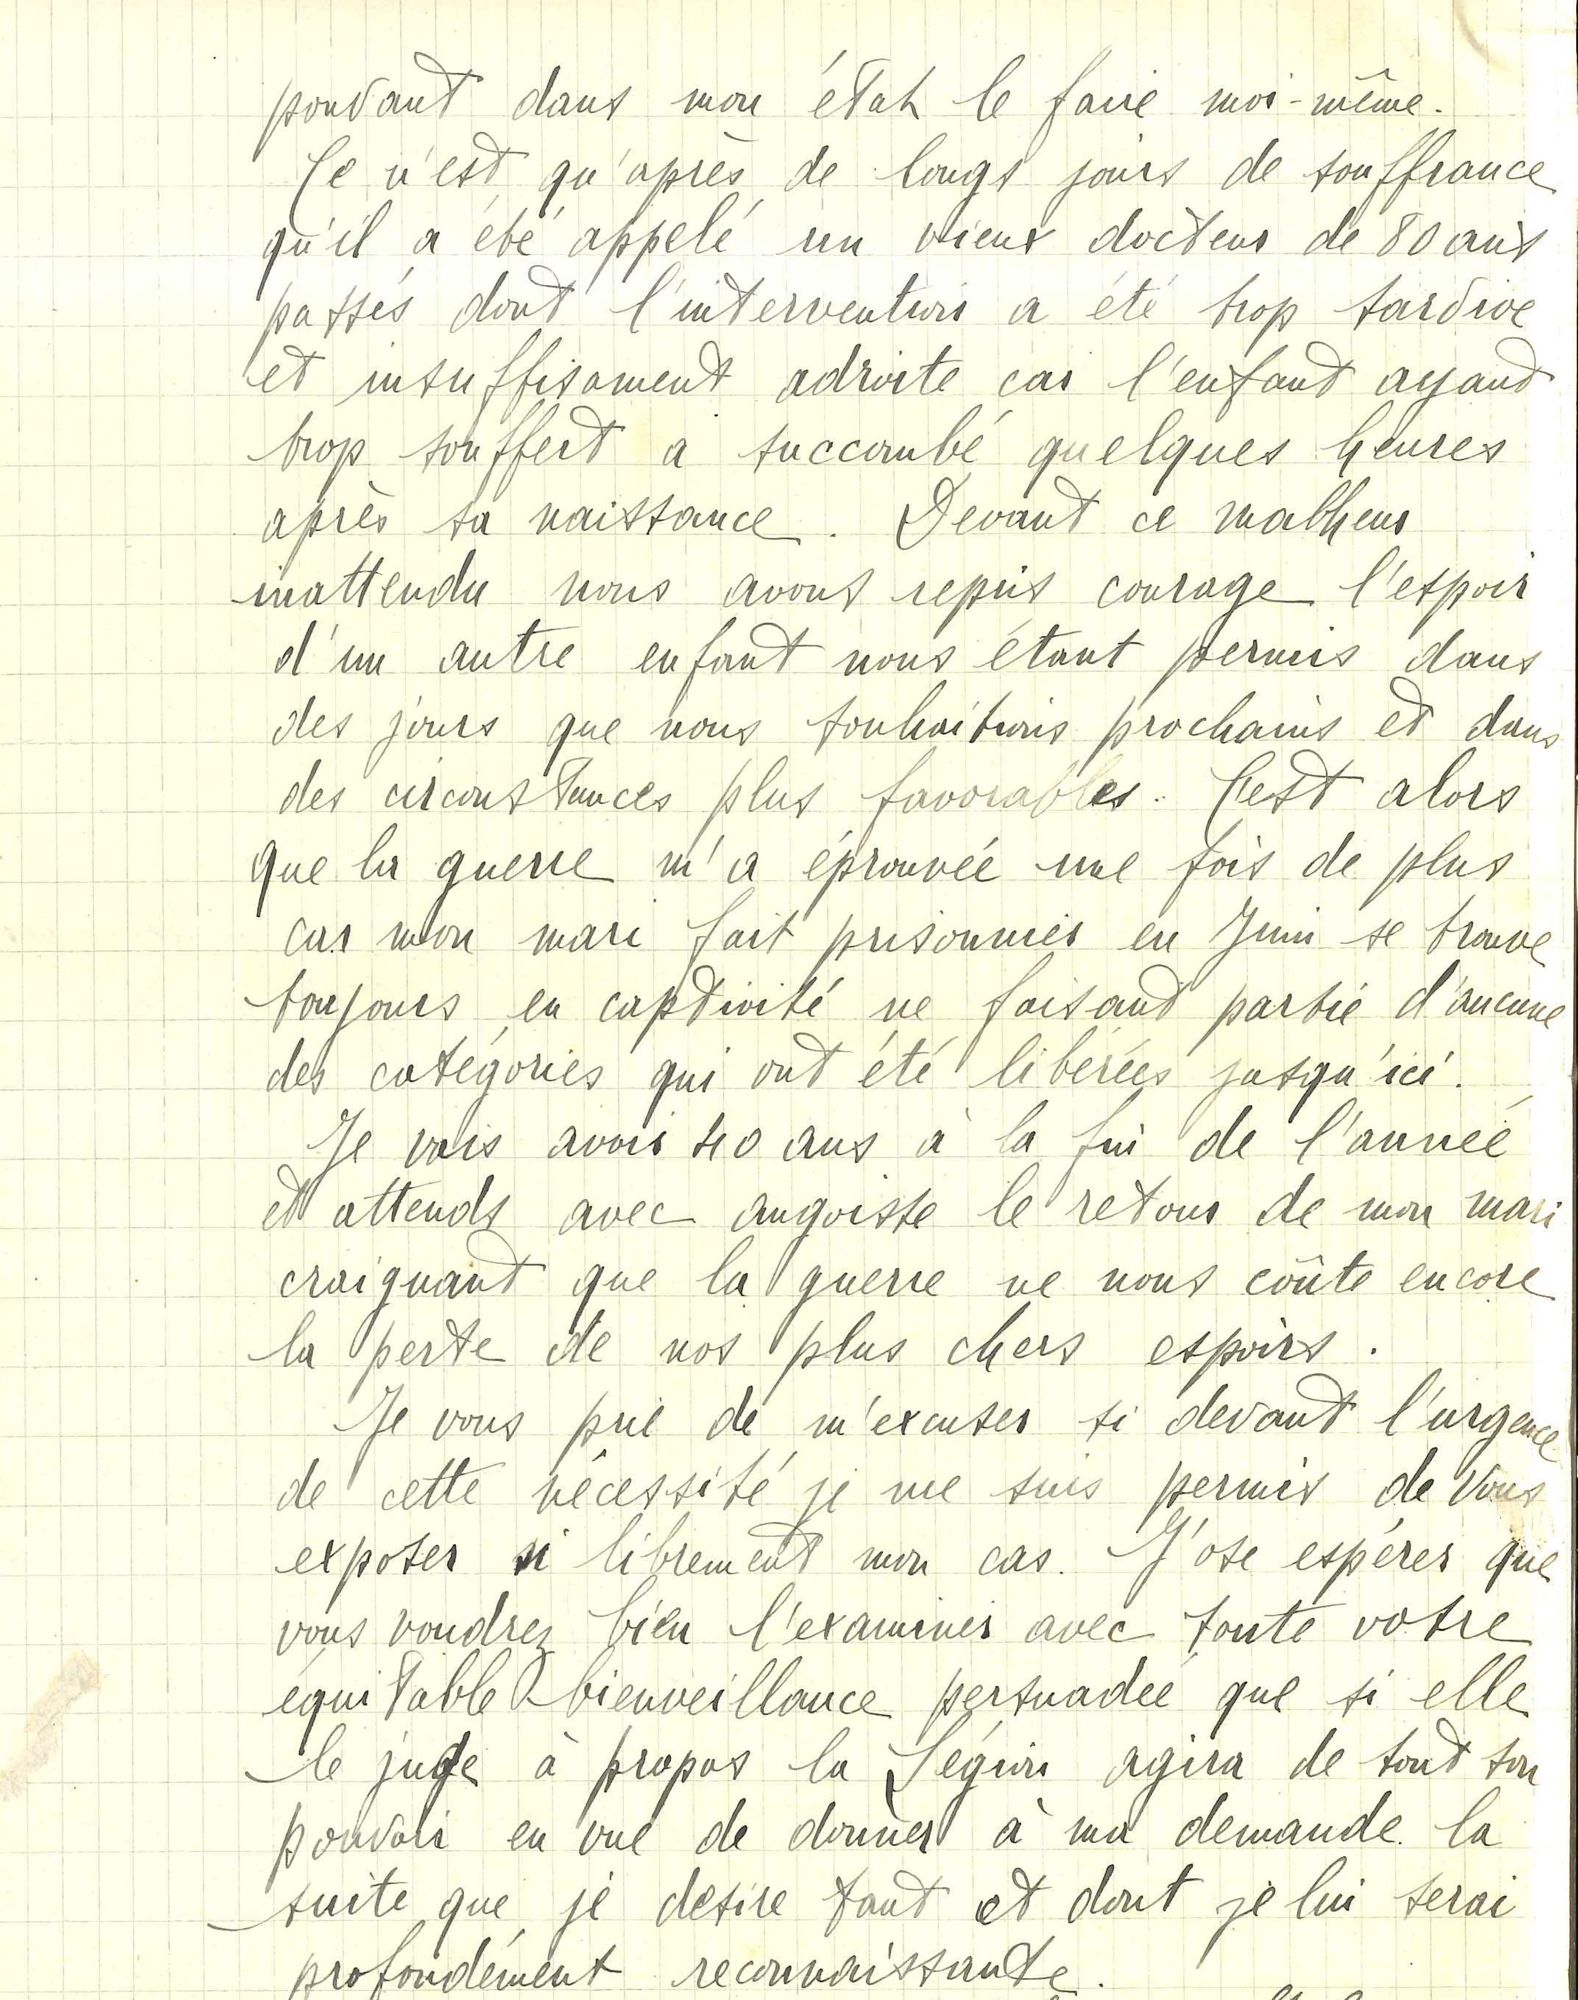 pouvant dans mon état le faire moi-même.
Ce n'est qu'après de longs jours de souffrance
qu'il a été appelé un vieux docteur de 80 ans
passés dont l'intervention a été trop tardive
et insuffisament adroite car l'enfant ayant
trop souffert a succombé quelques heures
après sa naissance. Devant ce malheur
inattendu nous avons repris courage l'espoir
d'un autre enfant nous étant permis dans
des jours que nous souhaitions prochains et dans
des circonstances plus favorables. C'est alors
que la guerre m'a éprouvée une fois de plus
car mon mari fait prisonnier en Juin se trouve
toujours en captivité ne faisant partie d'aucune
des catégories qui ont été libérées jusqu'ici.
Je vais avoir 40 ans à la fin de l'année
et attends avec angoisse le retour de mon mari
craignant que la guerre ne nous coûte encore
la perte de nos plus chers espoirs.
Je vous prie de m'excuser si devant l'urgence
de cette nécessité je me suis permis de Vous
exposer si librement mon cas. J'ose espérer que
vous voudrez bien l'examiner avec toute votre
équitable bienveillance persuadée que si elle
le juge à propos la Légion agira de tout son
pouvoir en vue de donner à ma demande la
suite que je desire tant et dont je lui serai
profondément reconnaissante.